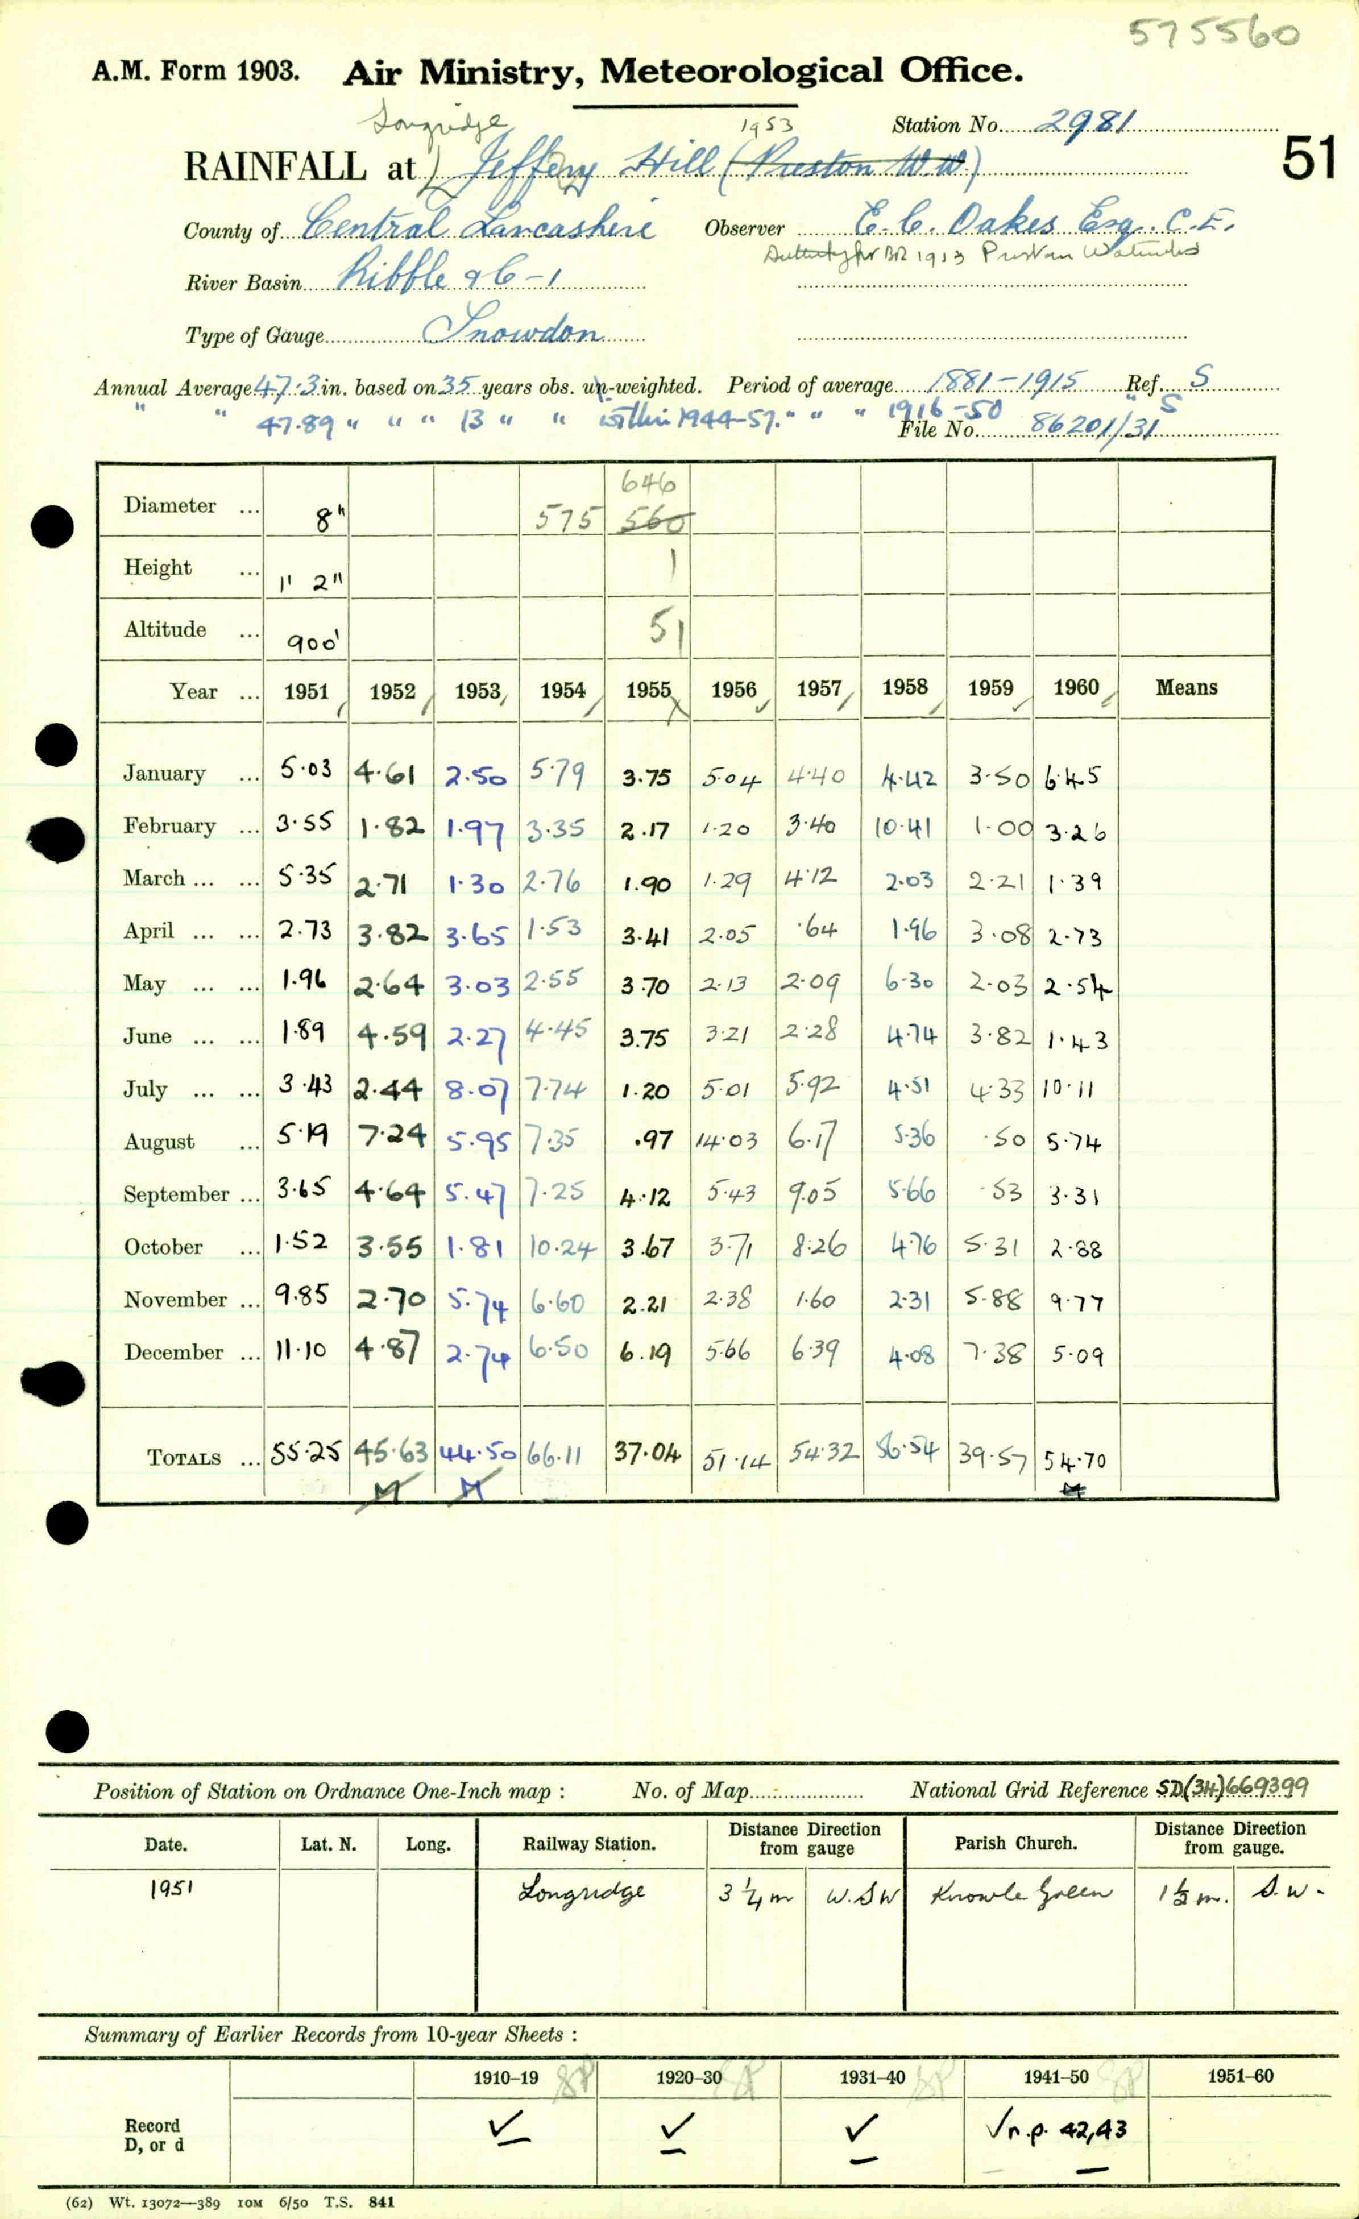 575560
A.M. Form 1903. Air Ministry, Meteorological Office.
Longridge 1953 Station No. 2981
RAINFALL at Jeffery Hill (Preston W.W) 51
County of Central Lancashire Observer E. C. Oakes Esq. C.E.
Authority for BR 1913 Preston Waterworks
River Basin Ribble &c - 1
Type of Gauge Snowdon
Annual Average 47.3 in. based on 35 years obs. un-weighted. Period of average 1881-1915 Ref. S
" " 47.89 " " " 13 " " within 1944-57. " " " 1916-50 " S
File No. 86201/31
646
Diameter ... 8" 575 560
Height ... 1' 2" 1
Altitude ... 900' 51
Year ... 1951 1952 1953 1954 1955 1956 1957 1958 1959 1960 Means
January ... 5.03 4.61 2.50 5.79 3.75 5.04 4.40 4.42 3.50 6.45
February ... 3.55 1.82 1.97 3.35 2.17 1.20 3.40 10.41 1.00 3.26
March ... ... 5.35 2.71 1.30 2.76 1.90 1.29 4.12 2.03 2.21 1.39
April ... ... 2.73 3.82 3.65 1.53 3.41 2.05 .64 1.96 3.08 2.73
May ... ... 1.96 2.64 3.03 2.55 3.70 2.13 2.09 6.30 2.03 2.54
June ... ... 1.89 4.59 2.27 4.45 3.75 3.21 2.28 4.74 3.82 1.43
July ... ... 3.43 2.44 8.07 7.74 1.20 5.01 5.92 4.51 4.33 10.11
August ... 5.19 7.24 5.95 7.35 .97 14.03 6.17 5.36 .50 5.74
September ... 3.65 4.64 5.47 7.25 4.12 5.43 9.05 5.66 .53 3.31
October ... 1.52 3.55 1.81 10.24 3.67 3.71 8.26 4.76 5.31 2.88
November ... 9.85 2.70 5.74 6.60 2.21 2.38 1.60 2.31 5.88 9.77
December ... 11.10 4.87 2.74 6.50 6.19 5.66 6.39 4.08 7.38 5.09
TOTALS ... 55.25 45.63 44.50 66.11 37.04 51.14 54.32 56.54 39.57 54.70
M M M
Position of Station on Ordnance One-Inch map : No. of Map National Grid Reference SD(34)669399
Date. Lat. N. Long. Railway Station. Distance from Direction gauge Parish Church. Distance from Direction gauge.
1951 Longridge 3 1/4 m W.SW Knowle Green 1 1/2 m. S.W.
Summary of Earlier Records from 10-year Sheets :
1910-19 SP 1920-30 SP 1931-40 SP 1941-50 SP 1951-60
Record
D, or d ✓ ✓ ✓ ✓ n.p. 42,43
(62) Wt. 13072—389 10M 6/50 T.S. 841